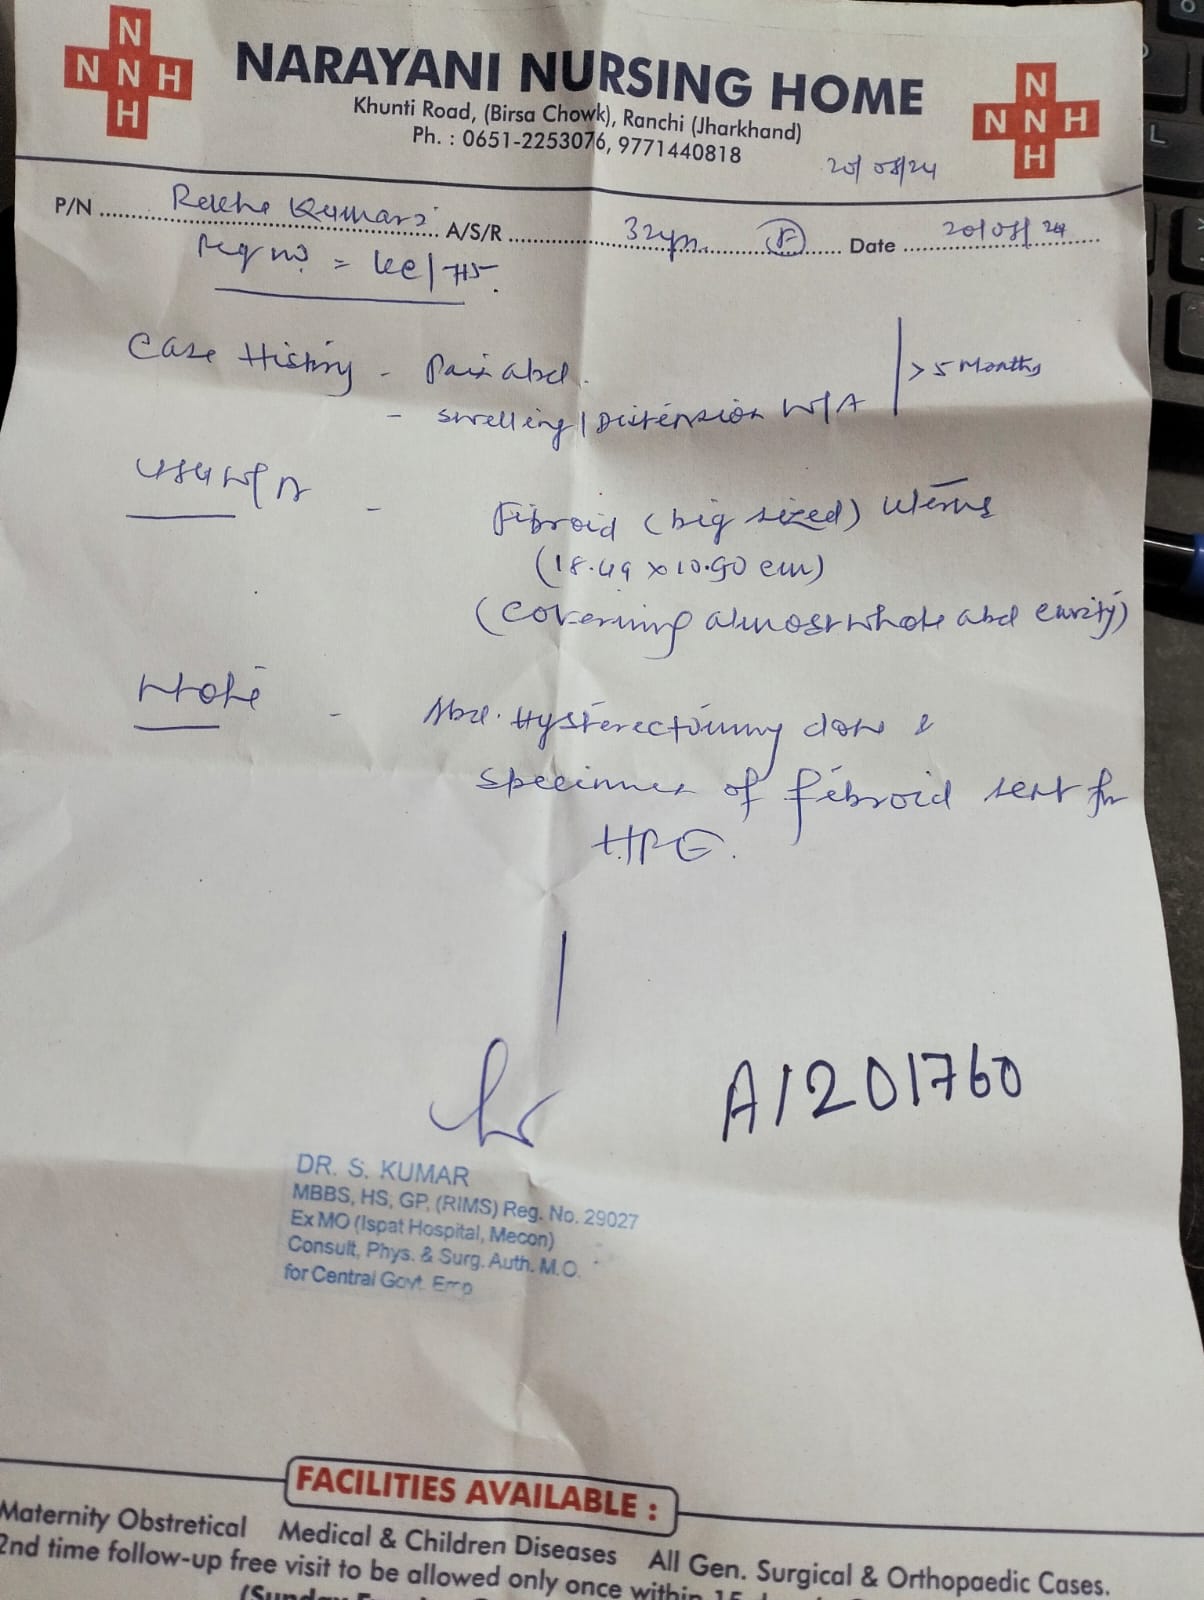 N
N N H
H
NARAYANI NURSING HOME
Khunti Road, (Birsa Chowk), Ranchi (Jharkhand)
Ph. : 0651-2253076, 9771440818
N
N N H
H
20/08/24
P/N Rekha Kumari A/S/R 32yrs. F Date 20/08/24
Reg no =
Case History - Pain abd.
- swelling / Distension W/A
> 5 Months
USG W/A - Fibroid (big sized) Uterus
(18.49 x 10.90 cm)
(covering almost whole abd cavity)
Note - Abd. Hysterectomy done &
specimen of fibroid sent for
HPE.
A1201760
DR. S. KUMAR
MBBS, HS, GP, (RIMS) Reg. No. 29027
Ex MO (Ispat Hospital, Mecon)
Consult, Phys. & Surg. Auth. M.O.
for Central Govt. Emp
FACILITIES AVAILABLE :
Maternity Obstretical Medical & Children Diseases All Gen. Surgical & Orthopaedic Cases.
2nd time follow-up free visit to be allowed only once within 15
(Sunday